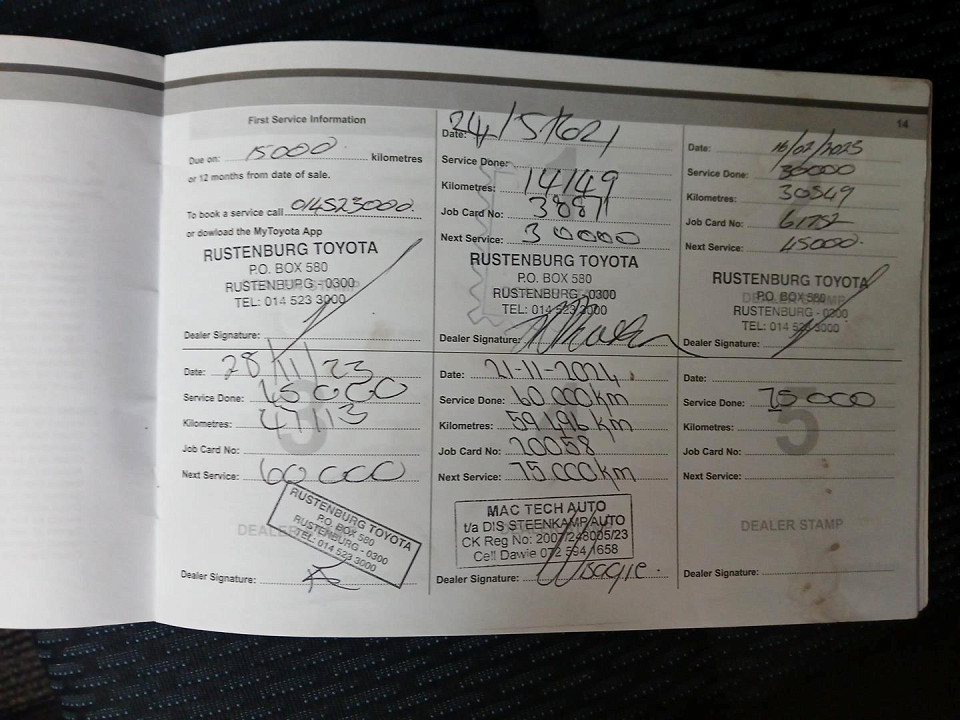 14
First Service Information
Due on: 15000 kilometres
or 12 months from date of sale.
To book a service call 014523000.
or dowload the MyToyota App
RUSTENBURG TOYOTA
P.O. BOX 580
RUSTENBURG - 0300
TEL: 014 523 3000
Dealer Signature:
Date: 24/5/2021
Service Done:
Kilometres: 14149
Job Card No: 3887
Next Service: 30000
RUSTENBURG TOYOTA
P.O. BOX 580
RUSTENBURG - 0300
TEL: 014 523 3000
Dealer Signature:
Date: 16/02/2023
Service Done: 30000
Kilometres: 30549
Job Card No: 61752
Next Service: 45000.
RUSTENBURG TOYOTA
P.O. BOX 580
RUSTENBURG - 0300
TEL: 014 523 3000
Dealer Signature:
Date: 28/11/23
Service Done: 45000
Kilometres: 47113
Job Card No:
Next Service: 60000
3
RUSTENBURG TOYOTA
P.O. BOX 580
RUSTENBURG - 0300
TEL: 014 523 3000
Dealer Signature:
Date: 21-11-2024
Service Done: 60 000km
Kilometres: 59 496 km
Job Card No: 20058
Next Service: 75 000km
MAC TECH AUTO
t/a DIS STEENKAMP AUTO
CK Reg No: 2007/248005/23
Cell Dawie 072 594 1658
Dealer Signature:
Date:
Service Done: 75 000
Kilometres:
Job Card No:
Next Service:
5
DEALER STAMP
Dealer Signature: